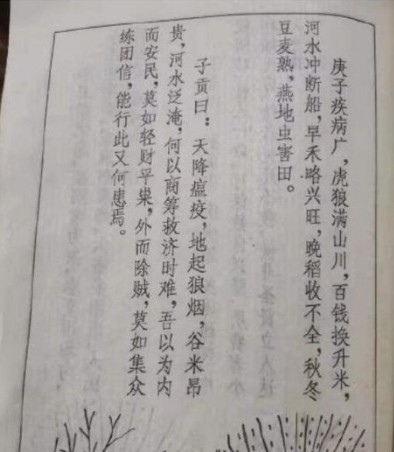 庚子疾病广，虎狼满山川，百钱换升米，
河水冲断船，早禾略兴旺，晚稻收不全，秋冬
豆麦熟，燕地虫害田。
子贡曰：天降瘟疫，地起狼烟，谷米昂
贵，河水泛淹，何以商筹救济时难，吾以为内
而安民，莫如轻财平粜，外而除贼，莫如集众
练团信，能行此又何患焉。